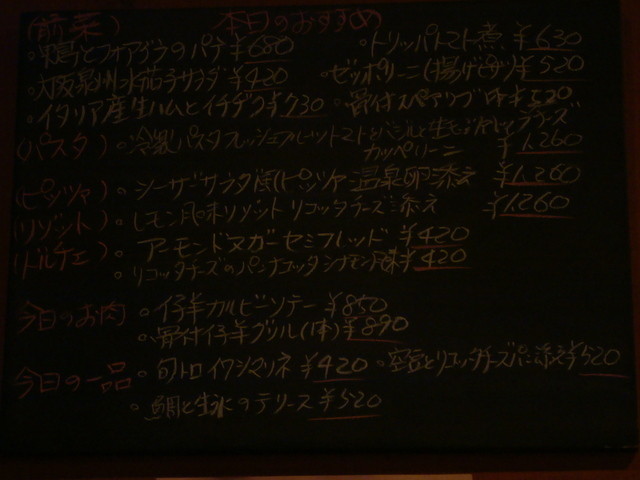 (前菜) 本日のおすすめ
。鴨とフォアグラのパテ ¥680 。トリッパトマト煮 ¥630
。大阪泉州水茄子サラダ ¥420 。ゼッポリーニ(揚げピザ) ¥520
。イタリア産生ハムとイチヂク ¥730 。骨付スペアリブ 1本 ¥520
(パスタ) 。冷製パスタ フレッシュフルーツトマトとバジルと チーズ
カッペリーニ ¥1,260
(ピッツァ) 。シーザーサラダ ピッツァ 温泉卵添え ¥1,260
(リゾット) 。レモン風味リゾット リコッタチーズ添え ¥1,260
(ドルチェ) 。アーモンドヌガーセミフレッド ¥420
。リコッタチーズのパンナコッタ シナモン風味 ¥420
今日のお肉 。仔羊カルビーソテー ¥850
。骨付仔羊グリル(1本) ¥890
今日の一品 。旬トロイワシマリネ ¥420 。空豆とリコッタチーズ 添え ¥520
。鯛と生 のテリーヌ ¥520